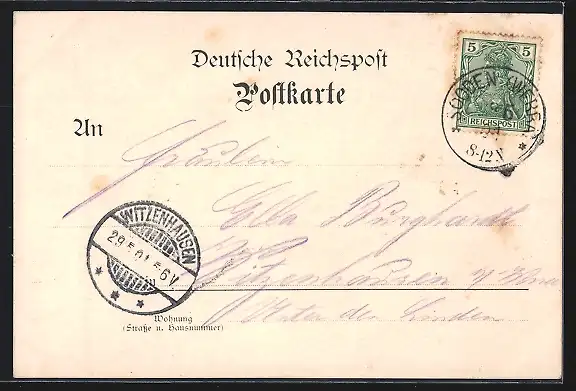 Deutsche Reichspost
Postkarte
5 5
REICHSPOST
8-12 N
An
Fräulein
Ella Burghardt
WITZENHAUSEN
29.5.01. 5-6 V.
Witzenhausen
Unter den Linden
Wohnung
(Straße u. Hausnummer)